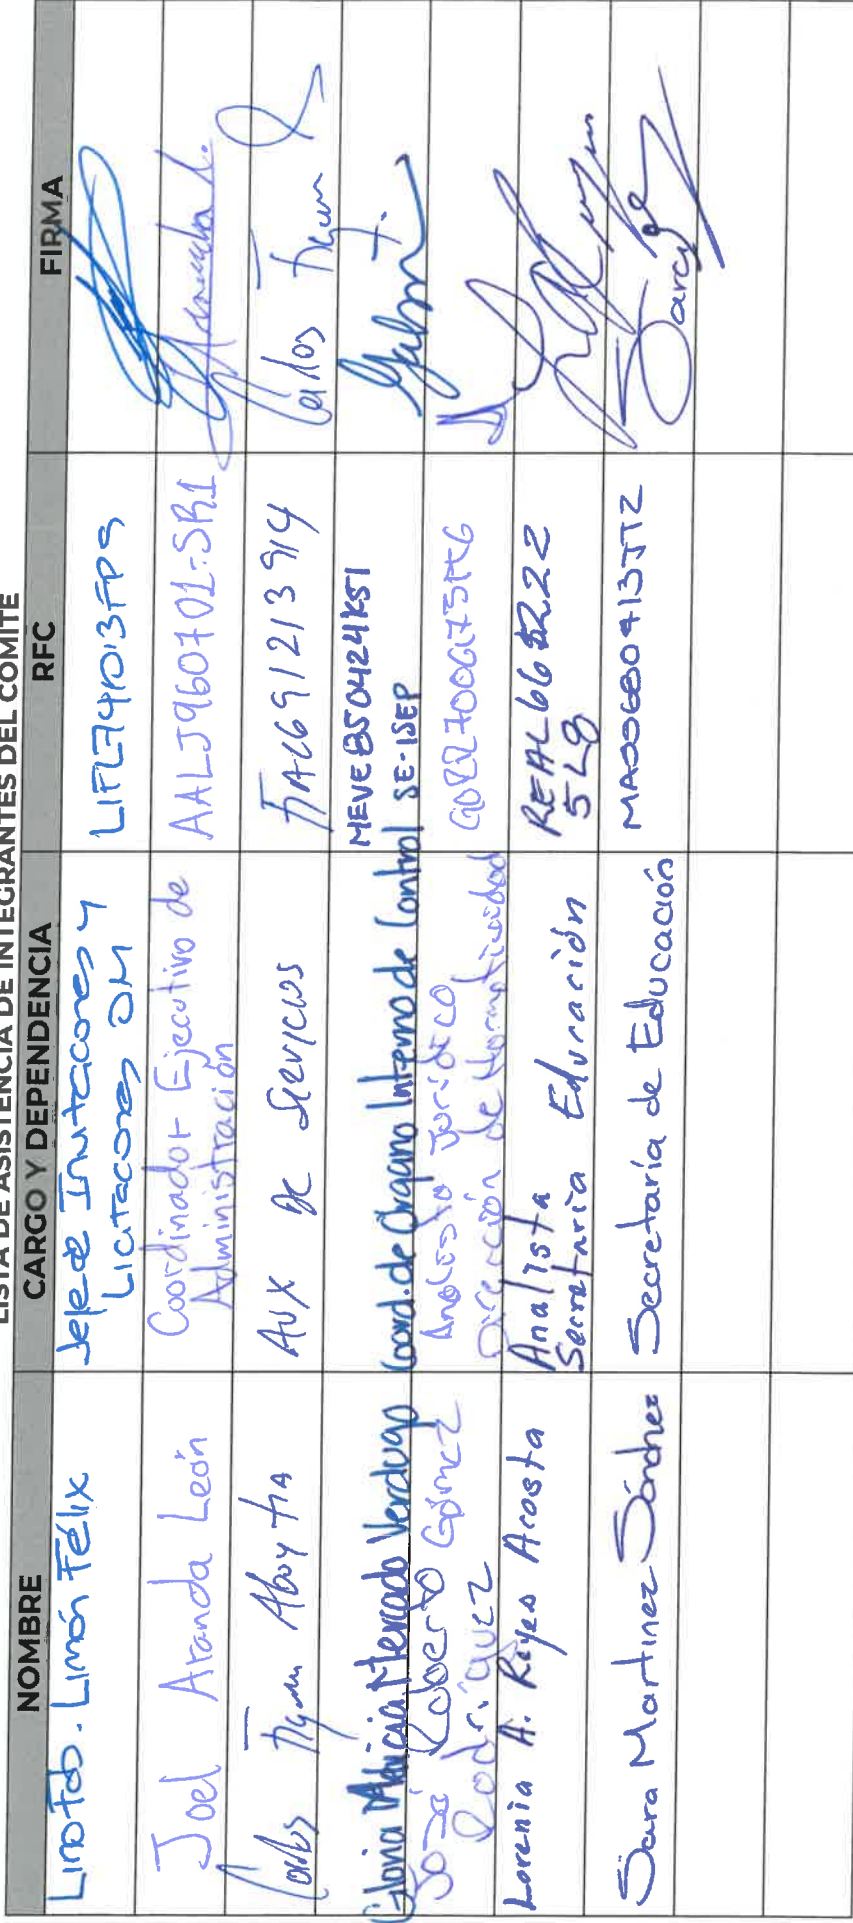 LISTA DE ASISTENCIA DE INTEGRANTES DEL COMITÉ
NOMBRE CARGO Y DEPENDENCIA RFC FIRMA
Lino Fdo. Limón Félix
Jefe de Invitaciones y
Licitaciones OM
LIFL741013FP5
Joel Aranda León
Coordinador Ejecutivo de
Administración
AALJ960701-SR1
Carlos Aboytia
Aux de Servicios
691213914
Carlos
Gloria Mercado Verdugo
Coord. de Organo Interno de Control SE-ISEP
MEVE850424KS1
José Roberto Gómez
Rodríguez
Analista Jurídico
Dirección de Normatividad
Lorenia A. Reyes Acosta
Analista
Secretaria Educación
5L8
Sara Martinez Sánchez
Secretaría de Educación
MASS680413JT2